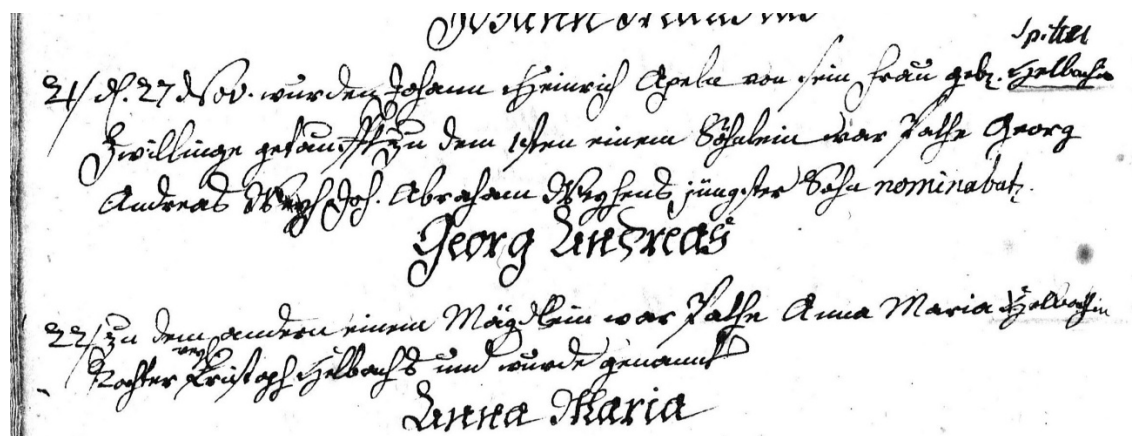 Spittel
21/ d. 27 Nov. wurden Johann Heinrich Apeln von sein Frau geb. Helbachin
Zwillinge getaufft zu dem 1sten einem Söhnlein war Pathe Georg
Andreas Weyh Joh. Abraham Weyhens jüngster Sohn nominabat.
Georg Andreas
22/ zu dem andern einem Mägdlein war Pathe Anna Maria Helbachin
Tochter Christoph Helbachs und wurde genannt
Anna Maria